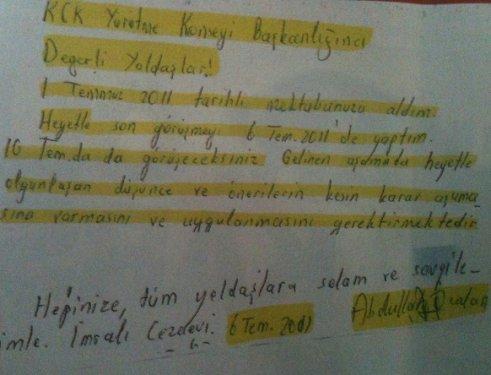 KCK Yürütme Konseyi Başkanlığına
Değerli Yoldaşlar!
1 Temmuz 2011 tarihli mektubunuzu aldım.
Heyetle son görüşmeyi 6 Tem. 2011'de yaptım.
10 Tem.da da görüşeceksiniz. Gelinen aşamada heyetle
olgunlaşan düşünce ve önerilerin kesin karar aşama-
sına varmasını ve uygulanmasını gerektirmektedir.
Hepinize, tüm yoldaşlara selam ve sevgile-
imle. İmralı Cezaevi. 6 Tem. 2011 Abdullah Öcalan